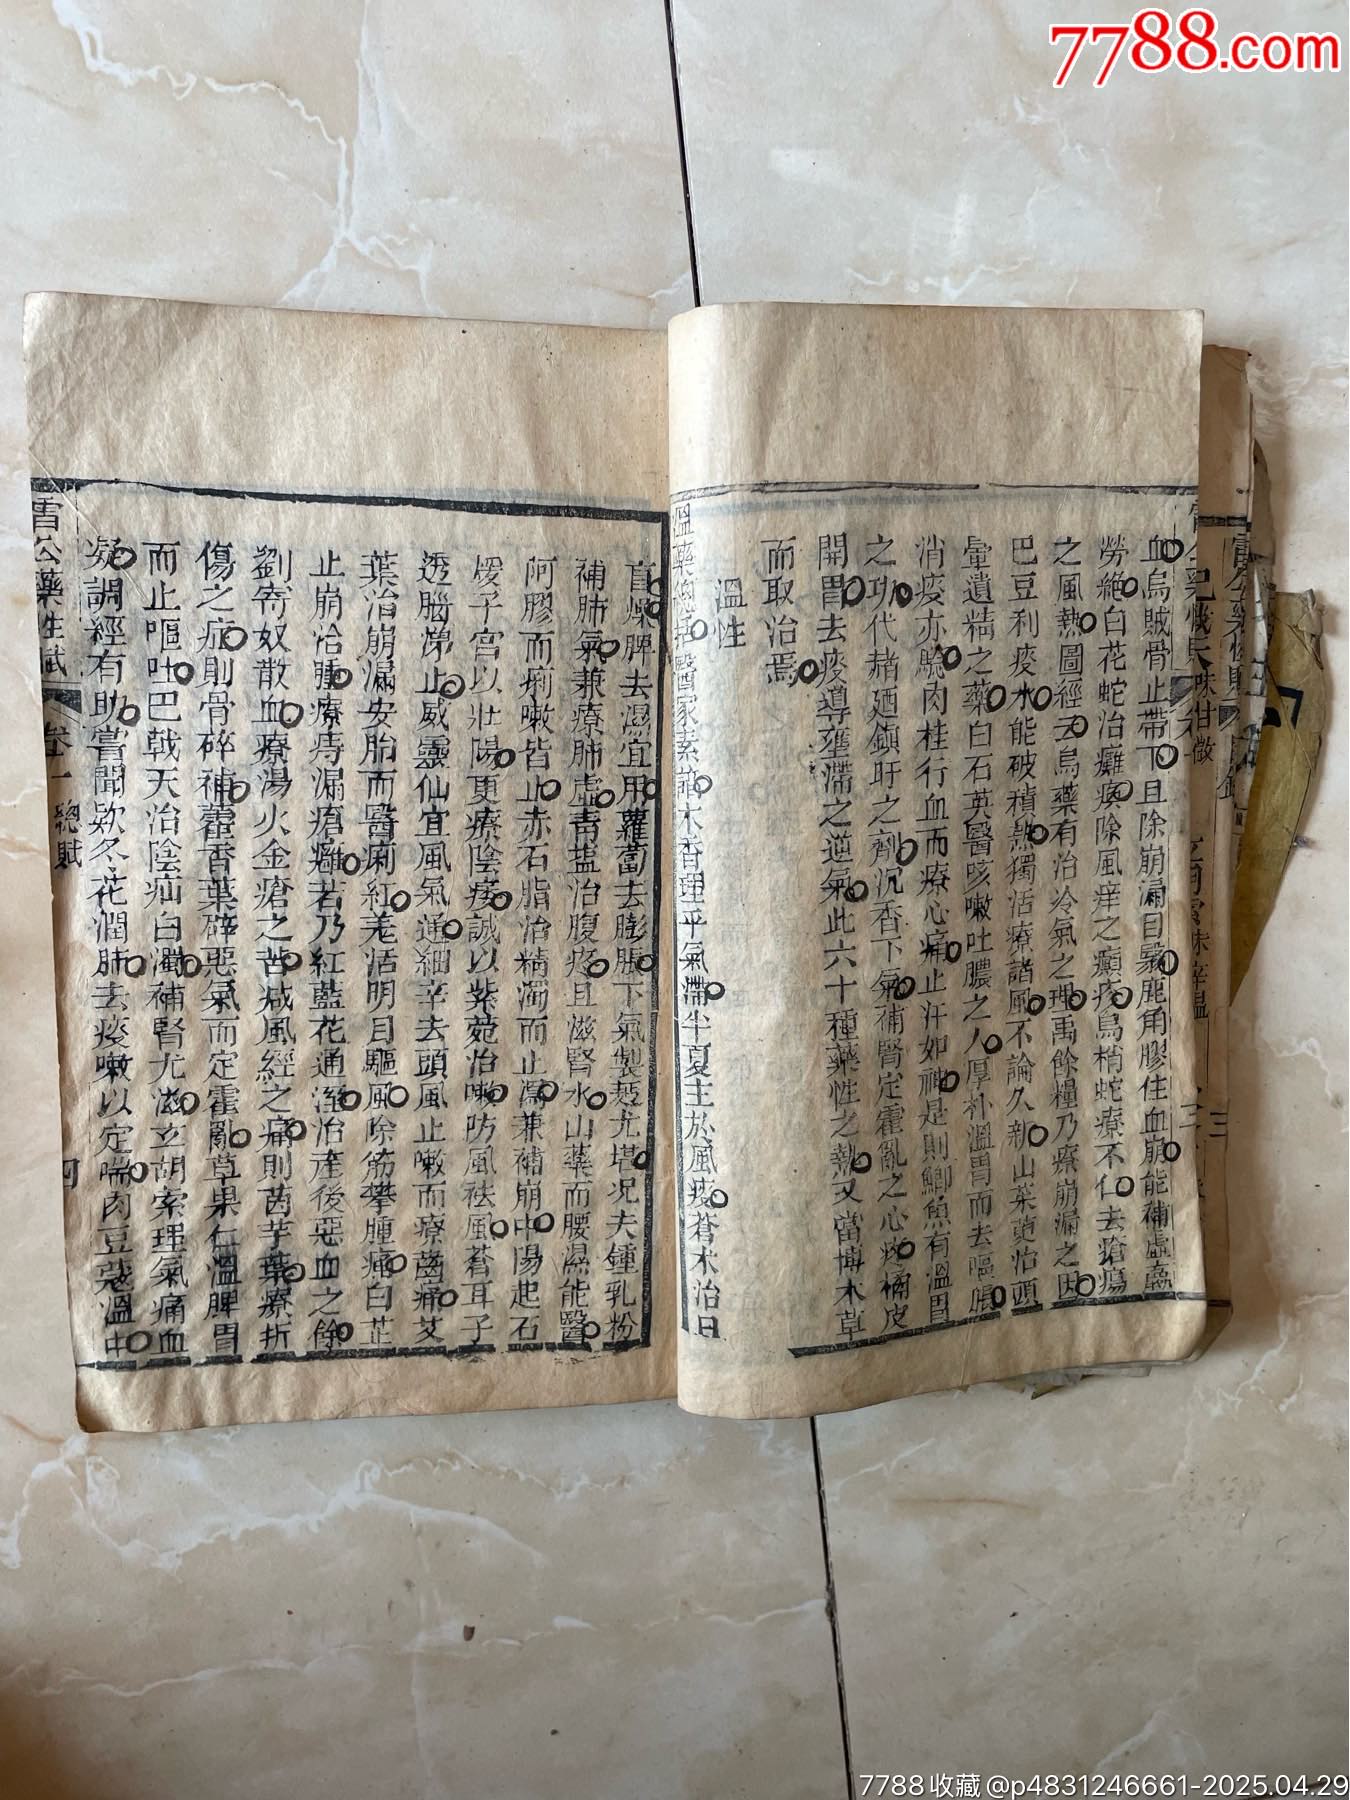 7788.com
血烏賊骨止帶下且除崩漏目翳鹿角膠住血崩能補虛羸
勞絶白花蛇治癱瘓除風痒之癲疾烏梢蛇療不仁去瘡瘍
之風熱圖經云烏藥有治冷氣之理禹餘糧乃療崩漏之因
巴豆利痰水能破積熱獨活療諸風不論久新山茱萸治頭
暈遺精之藥白石英醫咳嗽吐膿之人厚朴溫胃而去嘔脹
消痰亦驗肉桂行血而療心痛止汗如神是則鯽魚有溫胃
之功代赭廼鎮肝之劑沉香下氣補腎定霍亂之心疼橘皮
開胃去痰導壅滯之逆氣此六十種藥性之熱又當博本草
而取治焉
溫性
溫藥總括醫家素諳木香理乎氣滯半夏主於風痰蒼朮治目
盲燥脾去濕宜用蘿蔔去膨脹下氣製麫尤堪况夫鍾乳粉
補肺氣兼療肺虛青盐治腹疼且滋腎水山藥而腰濕能醫
阿膠而痢嗽皆止赤石脂治精濁而止瀉兼補崩中陽起石
煖子宮以壯陽更療陰痿誠以紫菀治嗽防風袪風蒼耳子
透腦涕止威靈仙宜風氣通細辛去頭風止嗽而療齒痛艾
葉治崩漏安胎而醫痢紅羌活明目驅風除筋攣腫痛白芷
止崩治腫療痔漏瘡癰若乃紅藍花通經治產後惡血之餘
劉寄奴散血療湯火金瘡之苦减風經之痛則茵芋葉療折
傷之症則骨碎補藿香葉辟惡氣而定霍亂草果仁溫脾胃
而止嘔吐巴戟天治陰疝白濁補腎尤滋玄胡索理氣痛血
凝調經有助嘗聞欵冬花潤肺去痰嗽以定喘肉豆蔻溫中
雷公藥性賦 卷一 總賦 四
7788收藏@p4831246661-2025.04.29